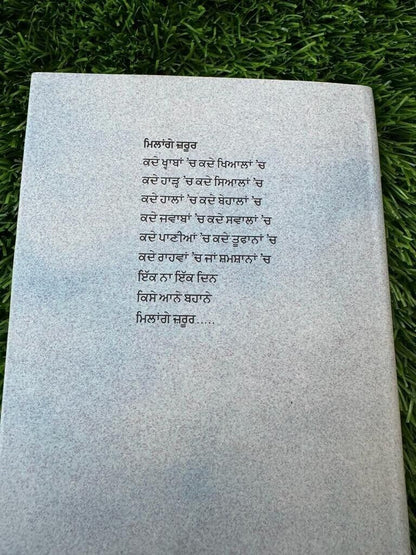 ਮਿਲਾਂਗੇ ਜ਼ਰੂਰ
ਕਦੇ ਖ਼ਾਬਾਂ 'ਚ ਕਦੇ ਖਿਆਲਾਂ 'ਚ
ਕਦੇ ਹਾੜ੍ਹ 'ਚ ਕਦੇ ਸਿਆਲਾਂ 'ਚ
ਕਦੇ ਹਾਲਾਂ 'ਚ ਕਦੇ ਬੇਹਾਲਾਂ 'ਚ
ਕਦੇ ਜਵਾਬਾਂ 'ਚ ਕਦੇ ਸਵਾਲਾਂ 'ਚ
ਕਦੇ ਪਾਣੀਆਂ 'ਚ ਕਦੇ ਤੂਫਾਨਾਂ 'ਚ
ਕਦੇ ਰਾਹਵਾਂ 'ਚ ਜਾਂ ਸ਼ਮਸ਼ਾਨਾਂ 'ਚ
ਇੱਕ ਨਾ ਇੱਕ ਦਿਨ
ਕਿਸੇ ਆਨੇ ਬਹਾਨੇ
ਮਿਲਾਂਗੇ ਜ਼ਰੂਰ.....